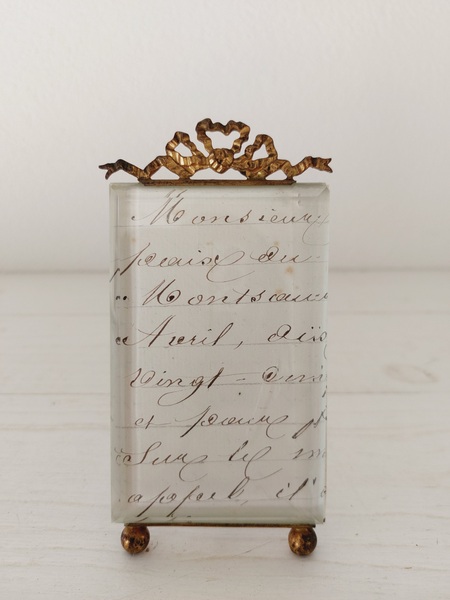 Monsieur
paix du
Montsau
Avril, dix
vingt-cinq
et pour p
Sur les m
appel, il